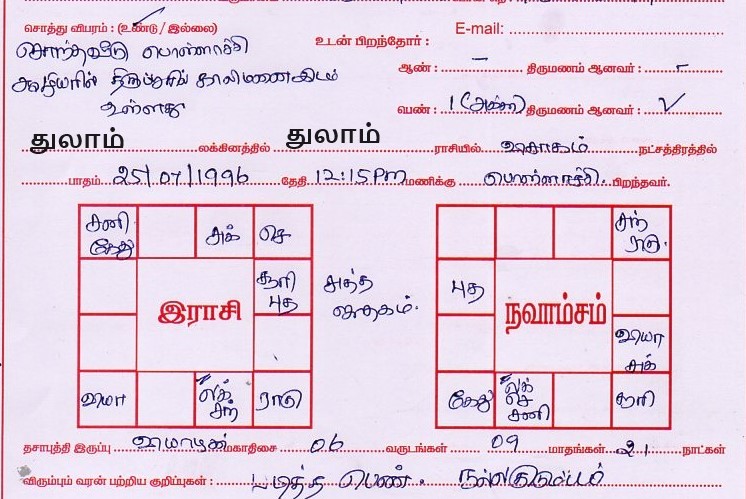 சொத்து விபரம் : (உண்டு / இல்லை)
E-mail:
சொந்தவீடு பொள்ளாச்சி
உடன் பிறந்தோர் :
காலிமனைஇடம்
ஆண் : – திருமணம் ஆனவர் : -
உள்ளது
பெண் : 1 (அக்கா) திருமணம் ஆனவர் : ✓
துலாம் லக்கினத்தில் துலாம் ராசியில் விசாகம் நட்சத்திரத்தில்
பாதம் 25/07/1996 தேதி 12:15 Pm மணிக்கு பொள்ளாச்சி பிறந்தவர்.
சனி கேது
சுக்
செ
சந் ராகு
சூரி புத
சுத்த ஜாதகம்.
புத
இராசி
நவாம்சம்
வியா சுக்
வியா
லக் சந்
ராகு
கேது
லக் செ சனி
சூரி
தசாபுத்தி இருப்பு வியாழன் மகாதிசை 06 வருடங்கள் 09 மாதங்கள் 21 நாட்கள்
விரும்பும் வரன் பற்றிய குறிப்புகள் : படித்த பெண். நல்லகுடும்பம்